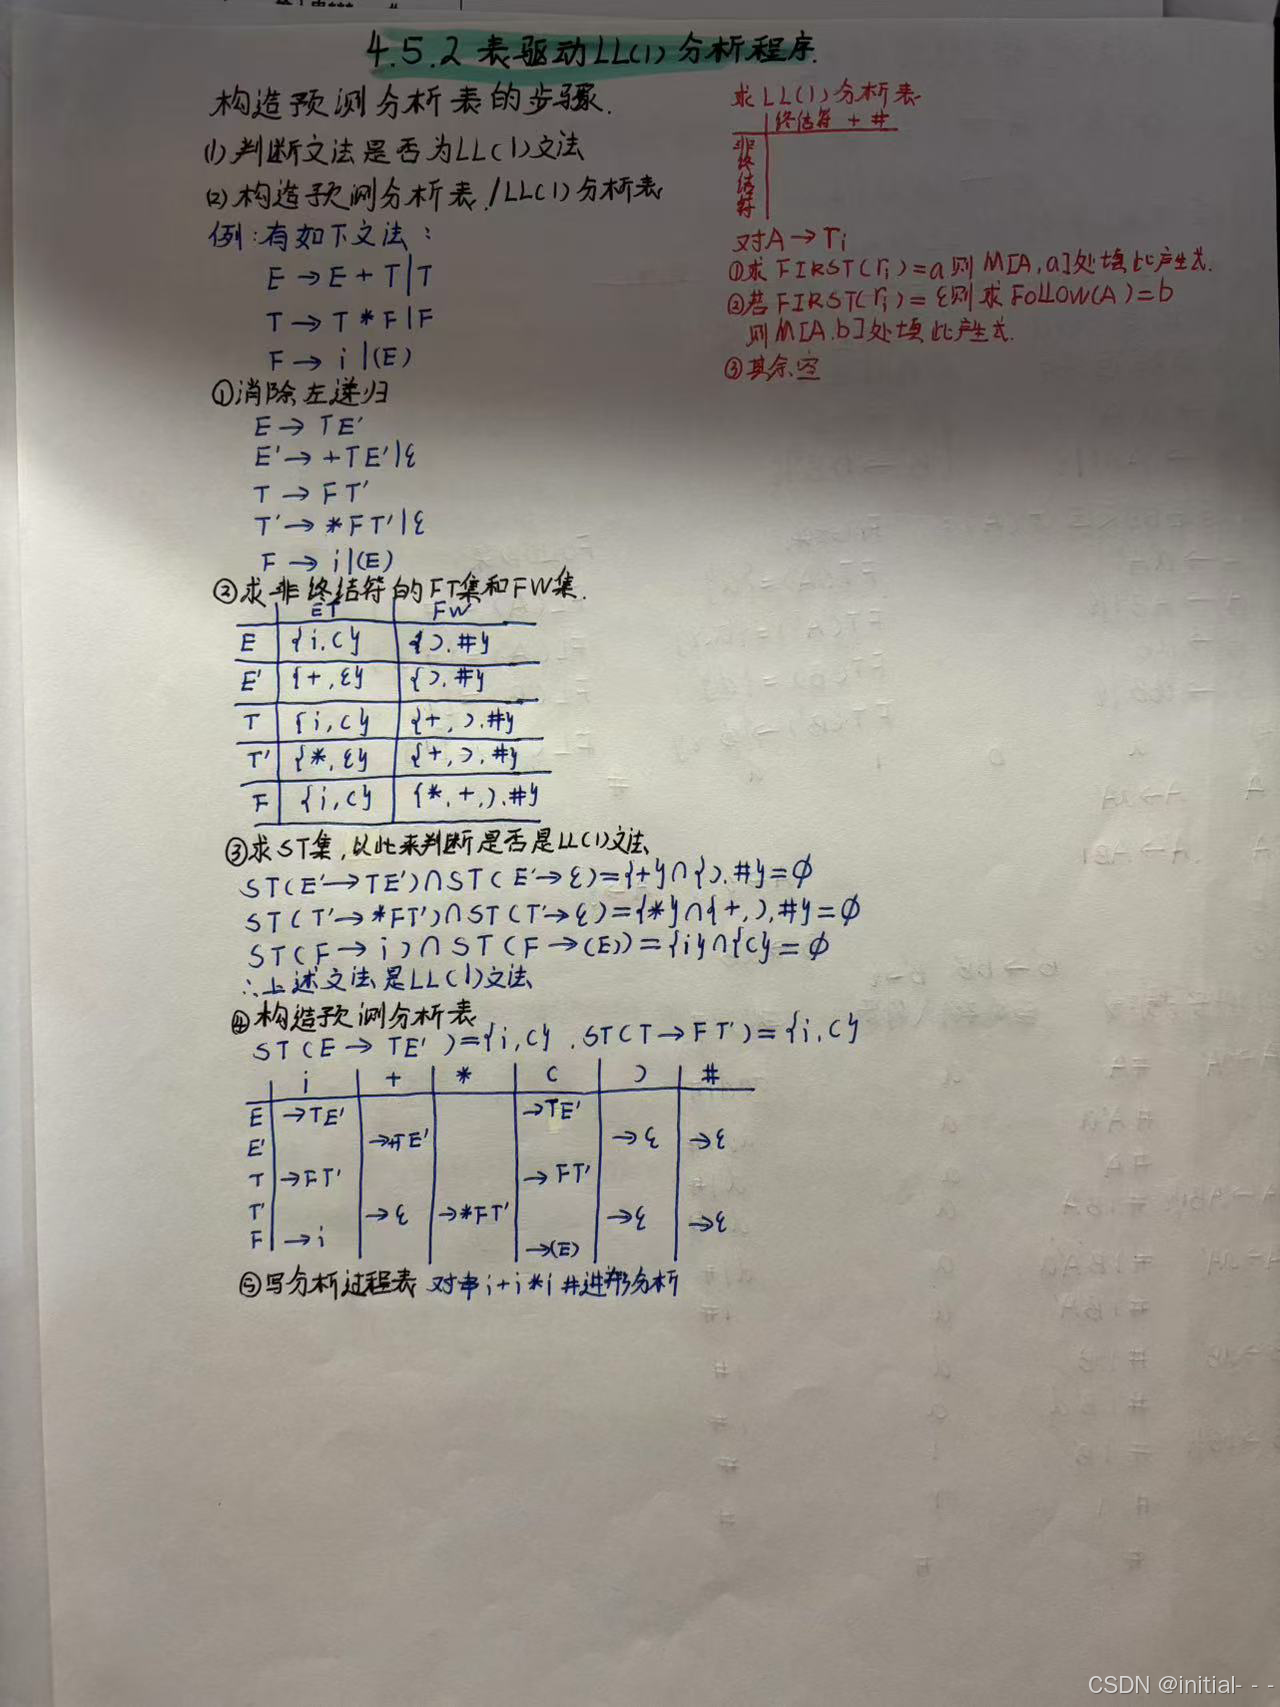 4.5.2 表驱动LL(1)分析程序.
构造预测分析表的步骤.
(1)判断文法是否为LL(1)文法
(2)构造预测分析表/LL(1)分析表
例:有如下文法:
E→E+T|T
T→T*F|F
F→i|(E)
①消除左递归
E→TE'
E'→+TE'|ε
T→FT'
T'→*FT'|ε
F→i|(E)
②求非终结符的FT集和FW集.
FT FW
E {i,(} {),#}
E' {+,ε} {),#}
T {i,(} {+,),#}
T' {*,ε} {+,),#}
F {i,(} {*,+,),#}
③求ST集,以此来判断是否是LL(1)文法
ST(E'→TE')∩ST(E'→ε)={+}∩{),#}=∅
ST(T'→*FT')∩ST(T'→ε)={*}∩{+,),#}=∅
ST(F→i)∩ST(F→(E))={i}∩{(}=∅
∴上述文法是LL(1)文法
④构造预测分析表
ST(E→TE')={i,(},ST(T→FT')={i,(}
i + * ( ) #
E →TE' →TE'
E' →+TE' →ε →ε
T →FT' →FT'
T' →ε →*FT' →ε →ε
F →i →(E)
⑤写分析过程表 对串i+i*i#进行分析
求LL(1)分析表
终结符+#
非终结符
对A→ri
①求FIRST(ri)=a则M[A,a]处填此产生式.
②若FIRST(ri)=ε则求FOLLOW(A)=b
则M[A,b]处填此产生式.
③其余空
CSDN @initial- - -